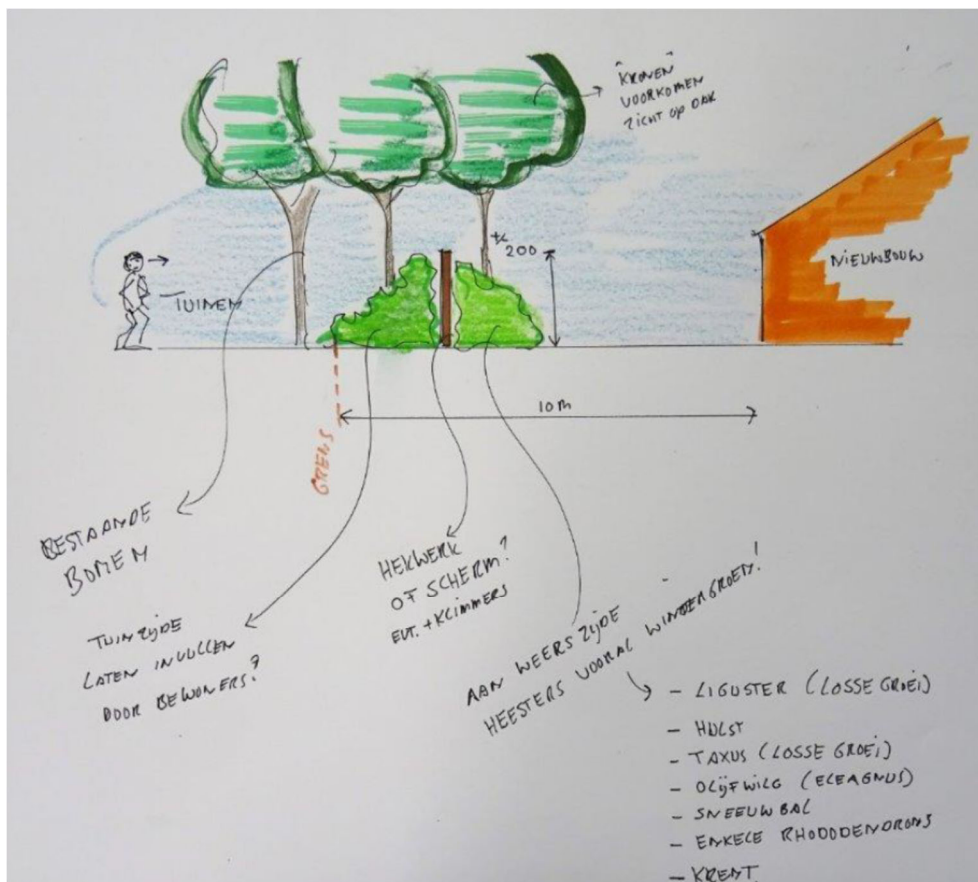 "KRONEN"
VOORKOMEN
ZICHT OP DAK
±
200
NIEUWBOUW
TUINEN
10 M
GRENS
BESTAANDE
BOMEN
TUINZIJDE
LATEN INVULLEN
DOOR BEWONERS?
HEKWERK
OF SCHERM?
EVT. + KLIMMERS
AAN WEERSZIJDE
HEESTERS VOORAL WINTERGROEN!
- LIGUSTER (LOSSE GROEI)
- HULST
- TAXUS (LOSSE GROEI)
- OLIJFWILG (ELEAGNUS)
- SNEEUWBAL
- ENKELE RHODODENDRONS
- KRENT